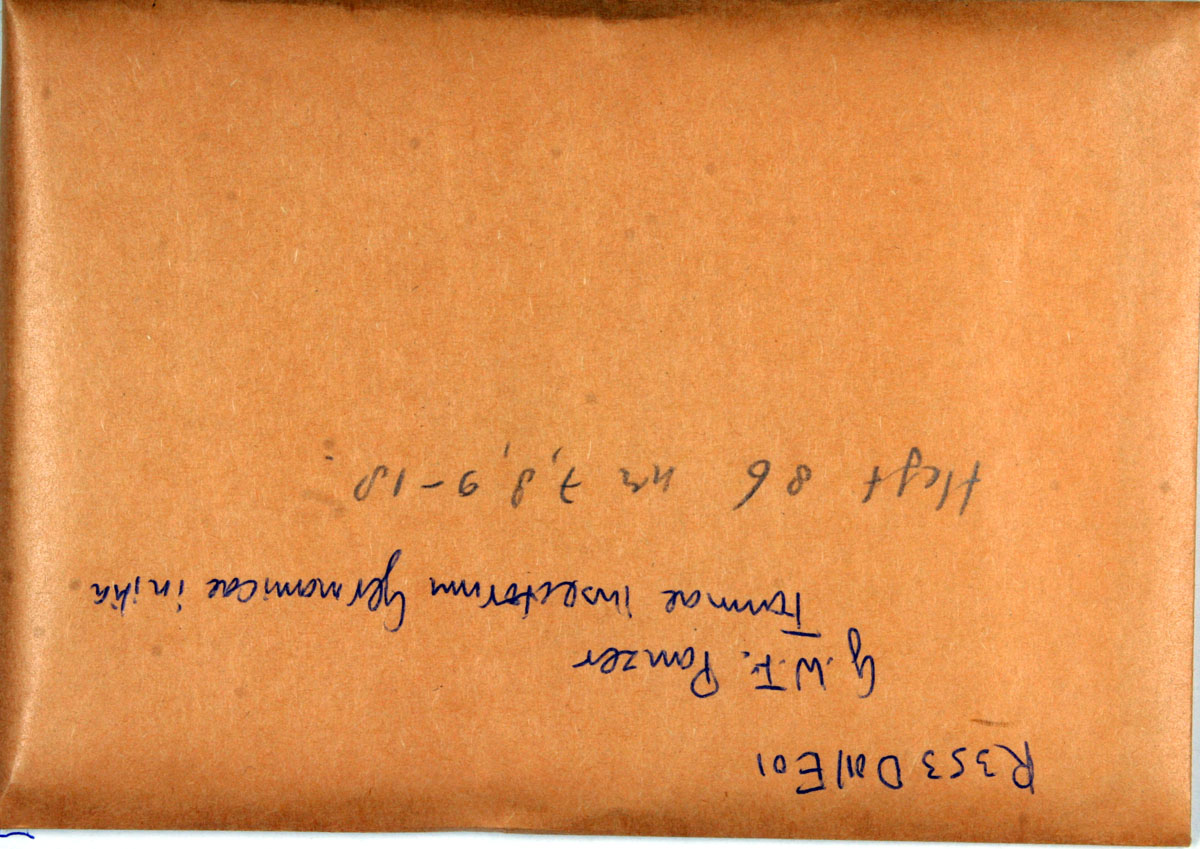 R353 D01/E01
G.W.F. Panzer
Faunae insectorum Germanicae initia
Heft 86 no 7,8,9-18